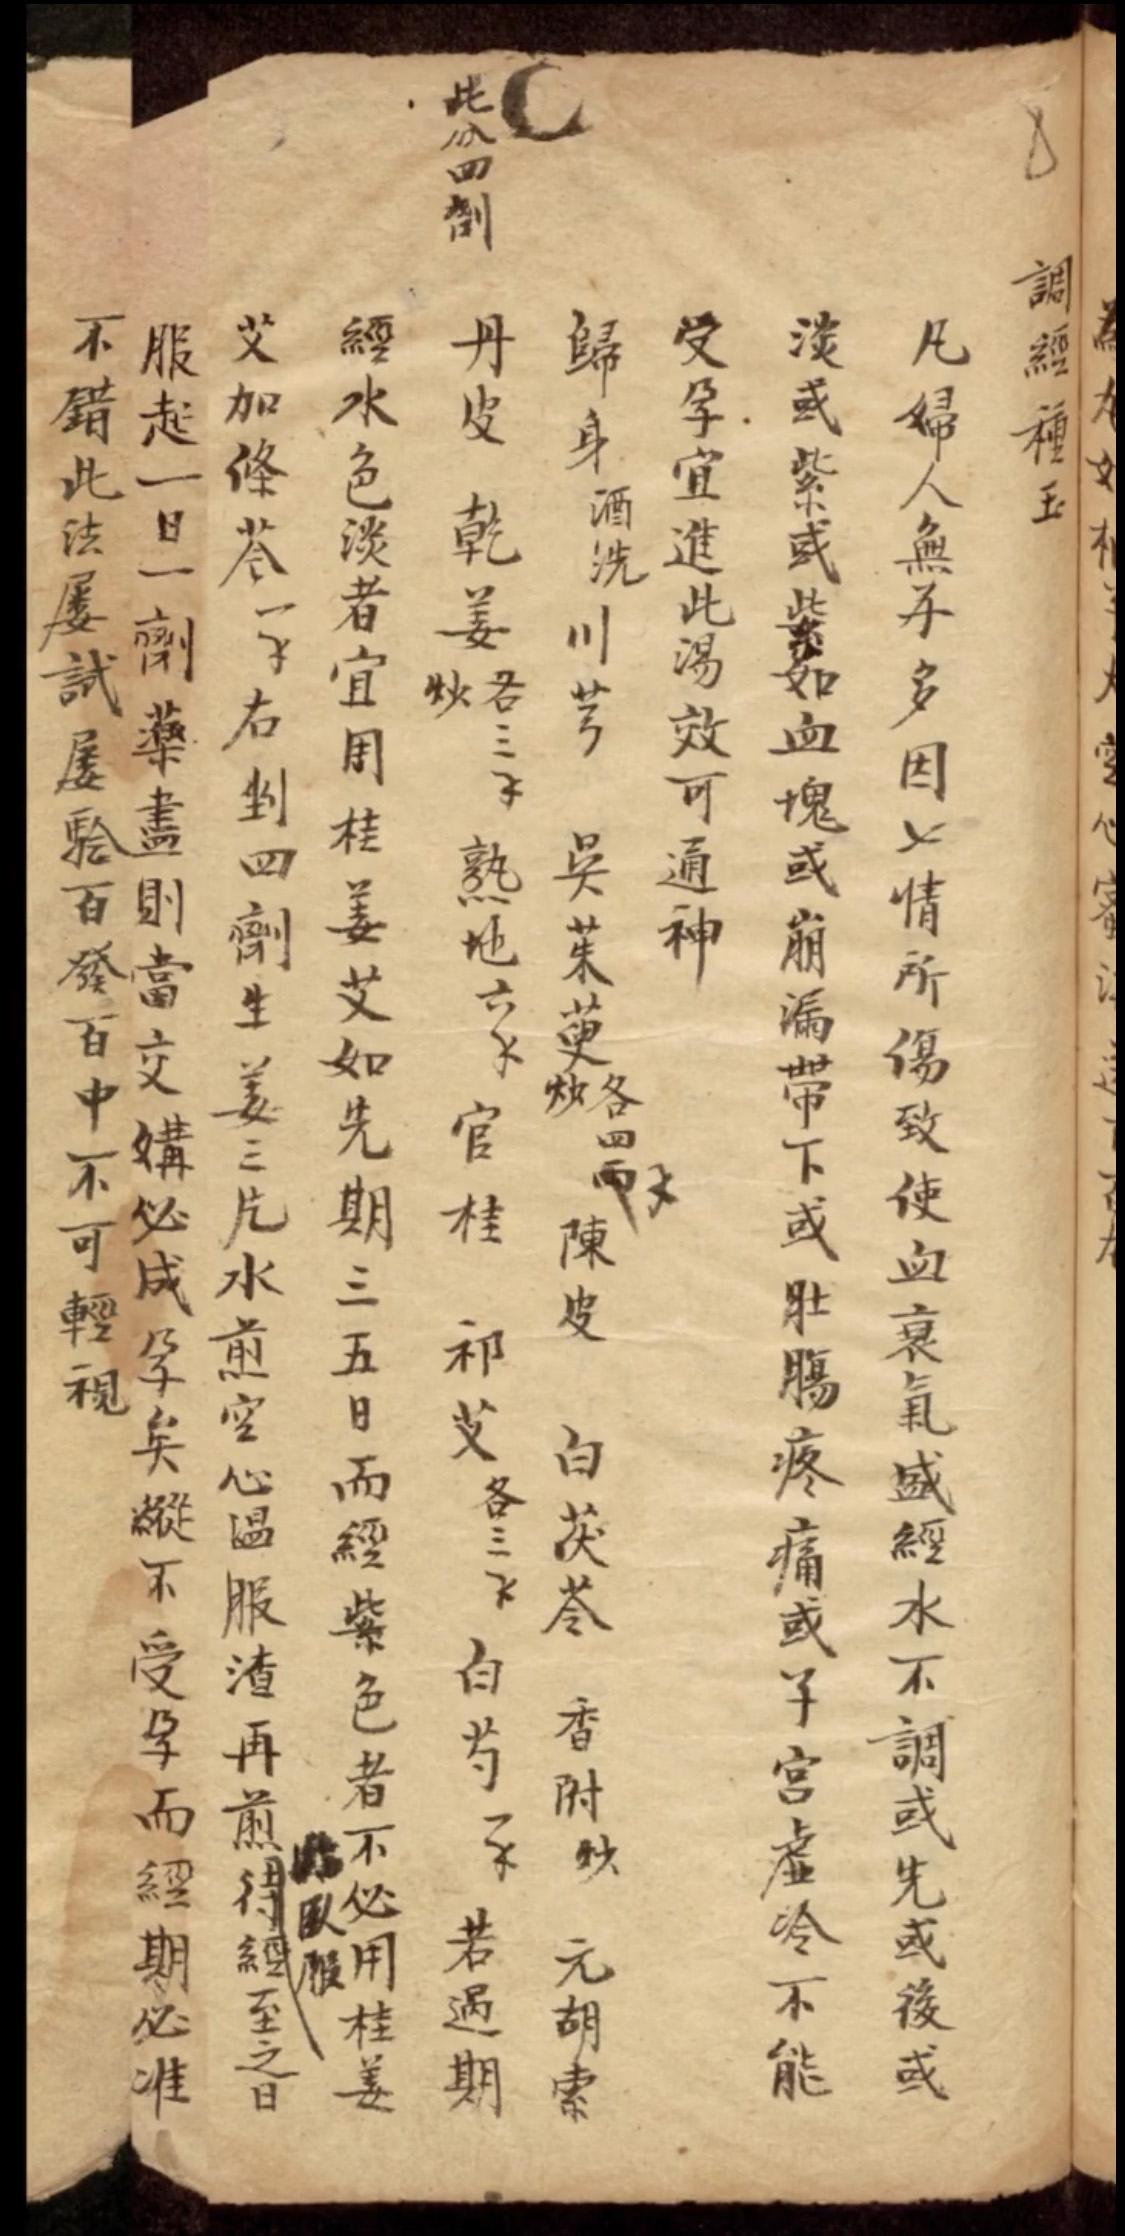 調經種玉
凡婦人無子多因七情所傷致使血衰氣盛經水不調或先或後或
淡或紫或紫如血塊或崩漏帶下或肚腸疼痛或子宮虛冷不能
受孕宜進此湯效可通神
歸身酒洗 川芎 吳茱萸炒各四兩才 陳皮 白茯苓 香附炒 元胡索
此公四劑
丹皮 乾姜炒各三才 熟地六才 官桂 祁艾各三才 白芍一才 若過期
經水色淡者宜用桂姜艾如先期三五日而經紫色者不必用桂姜
艾加條芩一才右剉四劑生姜三片水煎空心溫服渣再煎待經至之日
臨臥服
服起一日一劑藥盡則當交媾必成孕矣縱不受孕而經期必准
不錯此法屡試屡驗百發百中不可輕視